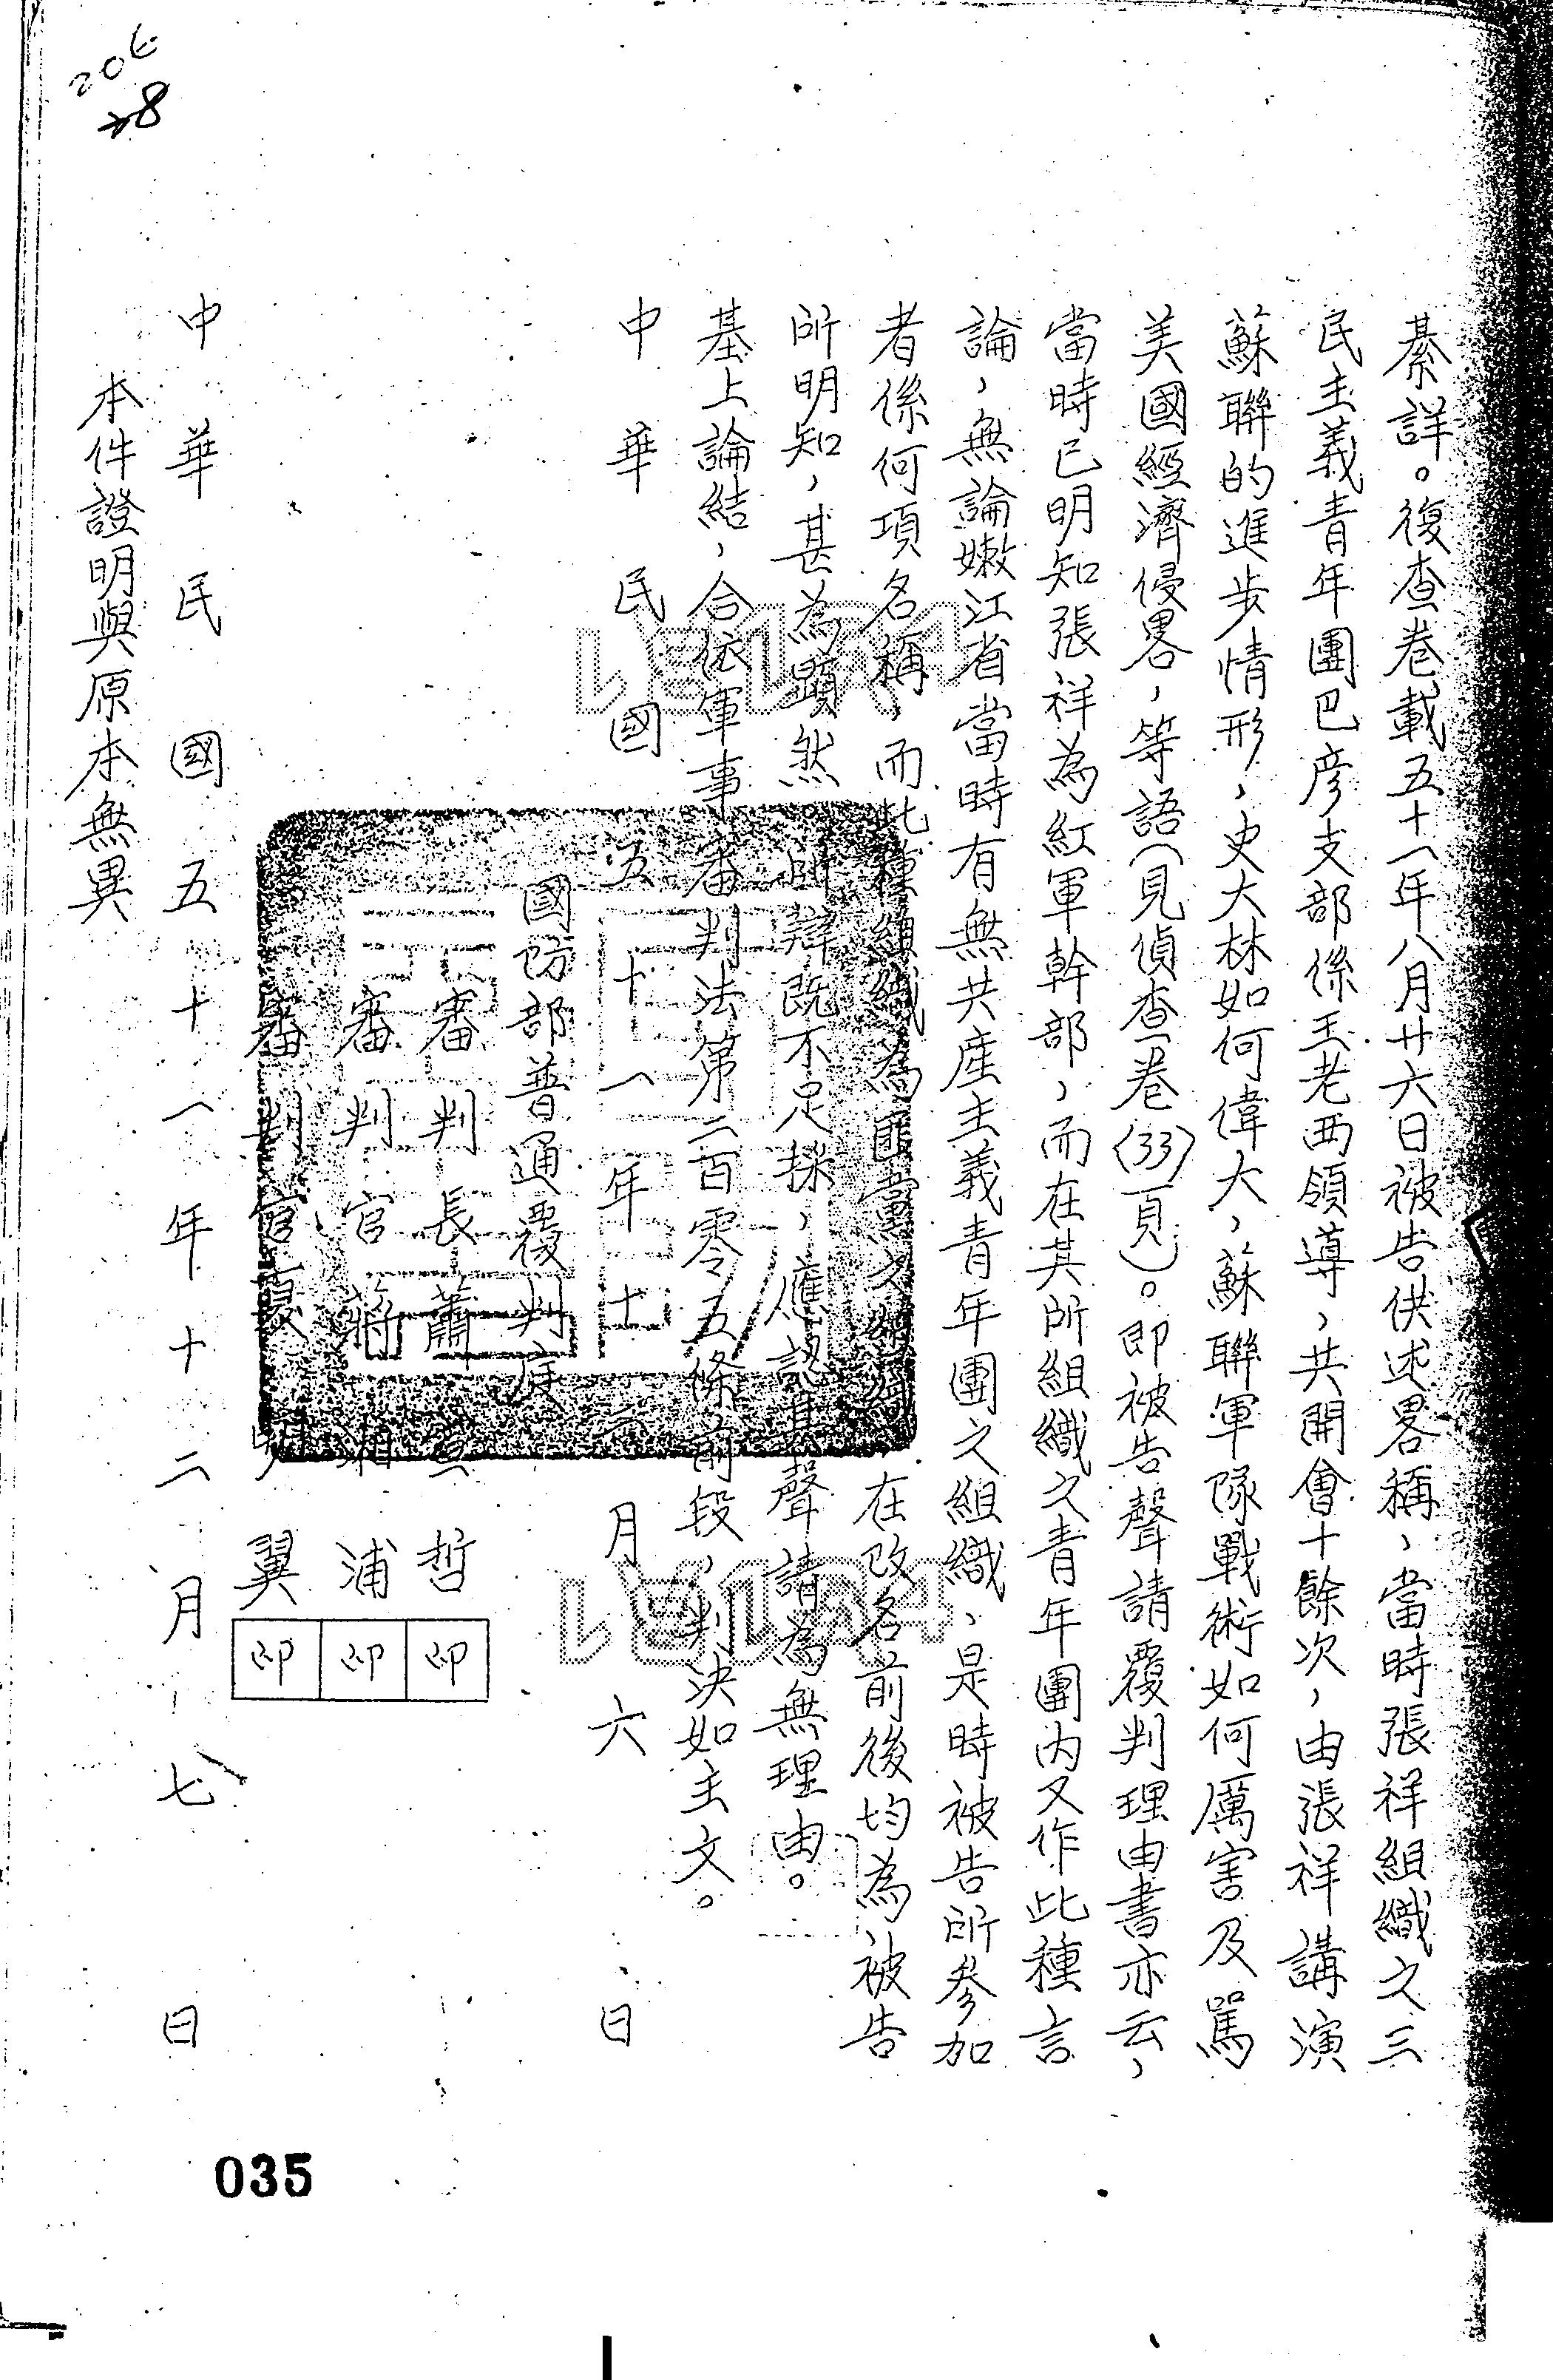 綦詳。復查卷載五十一年八月廿六日被告供述畧稱,當時張祥組織之三
民主義青年團巴彥支部係王老西領導,共開會十餘次,由張祥講演
蘇聯的進步情形,史大林如何偉大,蘇聯軍隊戰術如何厲害及罵
美國經濟侵畧,等語(見偵查卷(33)頁)。即被告聲請覆判理由書亦云,
當時已明知張祥為紅軍幹部,而在其所組織之青年團內又作此種言
論,無論嫩江省當時有無共產主義青年團之組織,是時被告所參加
者係何項名稱,而此種組織為匪黨之組織,在改名前後均為被告
所明知,甚為顯然。所辯既不足採,應認其聲請為無理由。
基上論結,合依軍事審判法第二百零五條前段,判決如主文。
中華民國五十一年十二月六日
國防部普通覆判庭
審判長蕭 哲 印
審判官蔣湘浦 印
審判官 明翼 印
中華民國五十一年十二月七日
本件證明與原本無異
206
035